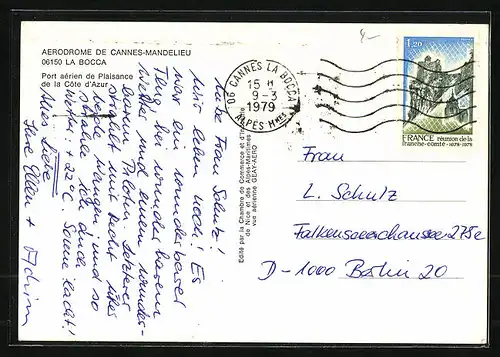 4-
AERODROME DE CANNES-MANDELIEU
06150 LA BOCCA
Port aérien de Plaisance
de la Côte d'Azur
06 CANNES LA BOCCA
15 H
9-3
1979
ALPES Mmes
1,20
FRANCE réunion de la
franche-comté-1678-1978
Edité par la Chambre de Commerce et d'Industrie
de Nice et des Alpes-Maritimes
vue aérienne GEAY-AERO
Liebe Frau Schulz!
Wir leben noch! Es
war ein wunderbarer
Flug bei wunderbarem
Wetter und einem wunder-
baren Piloten. Letzterer
strahlt nun recht übers
beide Wangen und so
Wetter: 22°C Sonne lacht!
Alles Liebe
Ihre Ellen + Achim
Frau
L. Schulz
Falkenseerchaussee 275c
D-1000 Berlin 20